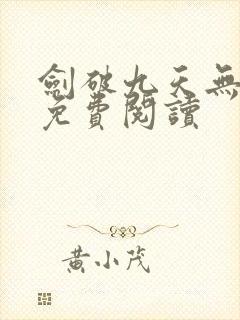 劍破九天無
免費閱讀
黃小茂